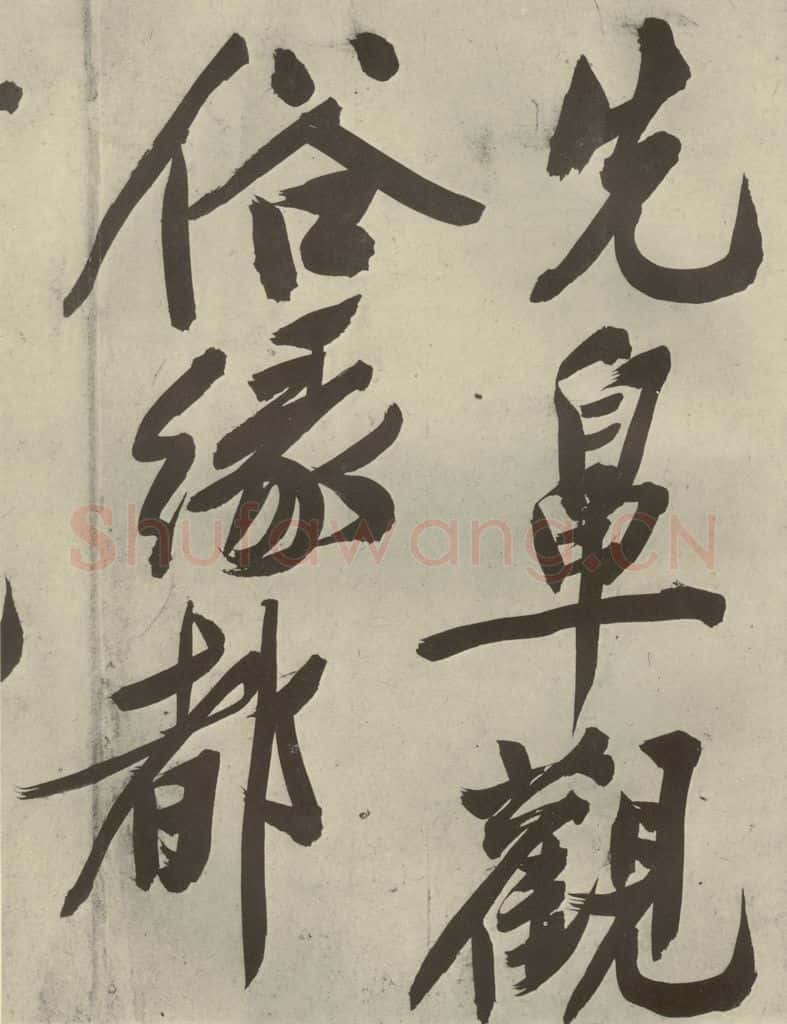 先阜觀
俗緣都
Shufawang.CN